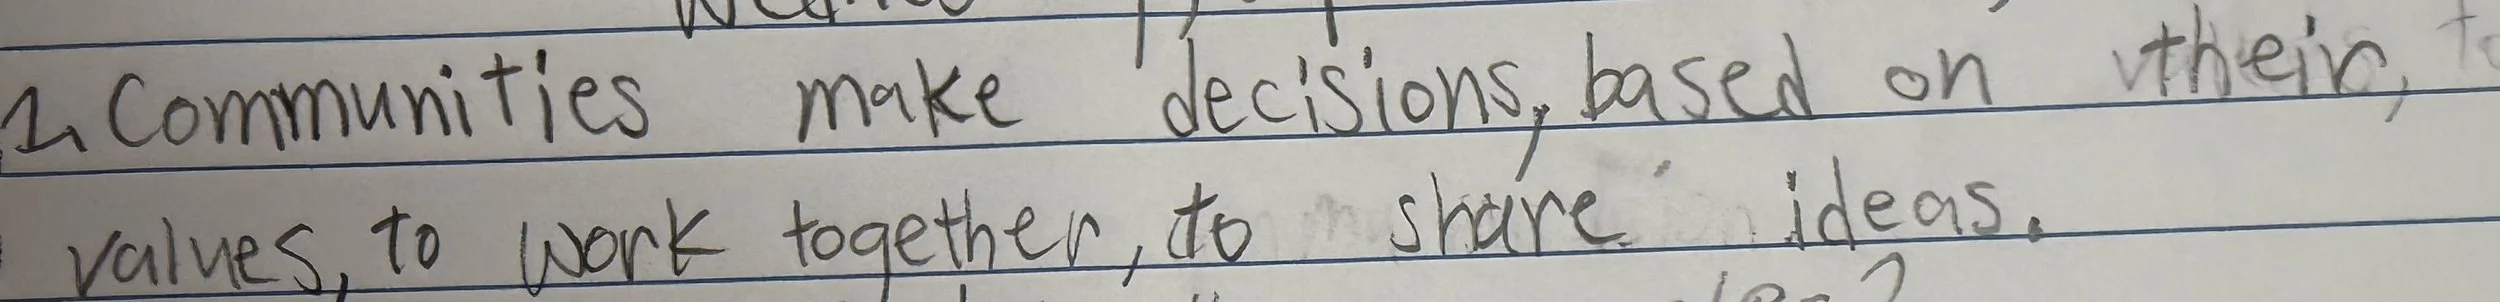 1. Communities make decisions, based on their,
values, to work together, to share ideas.